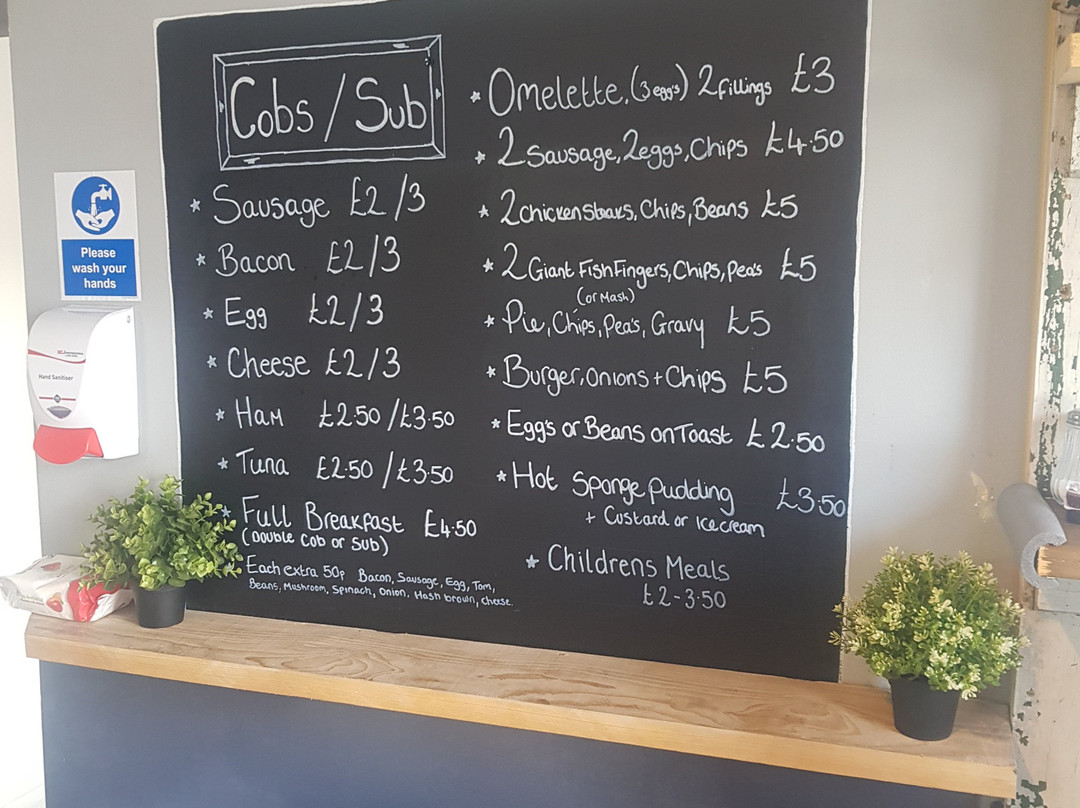 Cobs / Sub
* Sausage £2/3
* Bacon £2/3
* Egg £2/3
* Cheese £2/3
* Ham £2.50/£3.50
* Tuna £2.50/£3.50
* Full Breakfast £4.50
(Double Cob or Sub)
* Each extra 50p Bacon, Sausage, Egg, Tom,
Beans, Mushroom, Spinach, Onion, Hash brown, cheese.
* Omelette, (3 egg's) 2 fillings £3
* 2 Sausage, 2 eggs, Chips £4.50
* 2 chicken steaks, Chips, Beans £5
* 2 Giant Fish Fingers, Chips, Pea's £5
(or Mash)
* Pie, Chips, Pea's, Gravy £5
* Burger, Onions + Chips £5
* Egg's or Beans on Toast £2.50
* Hot Sponge Pudding £3.50
+ Custard or Icecream
* Childrens Meals
£2-3.50
Please
wash your
hands
Hand Sanitiser